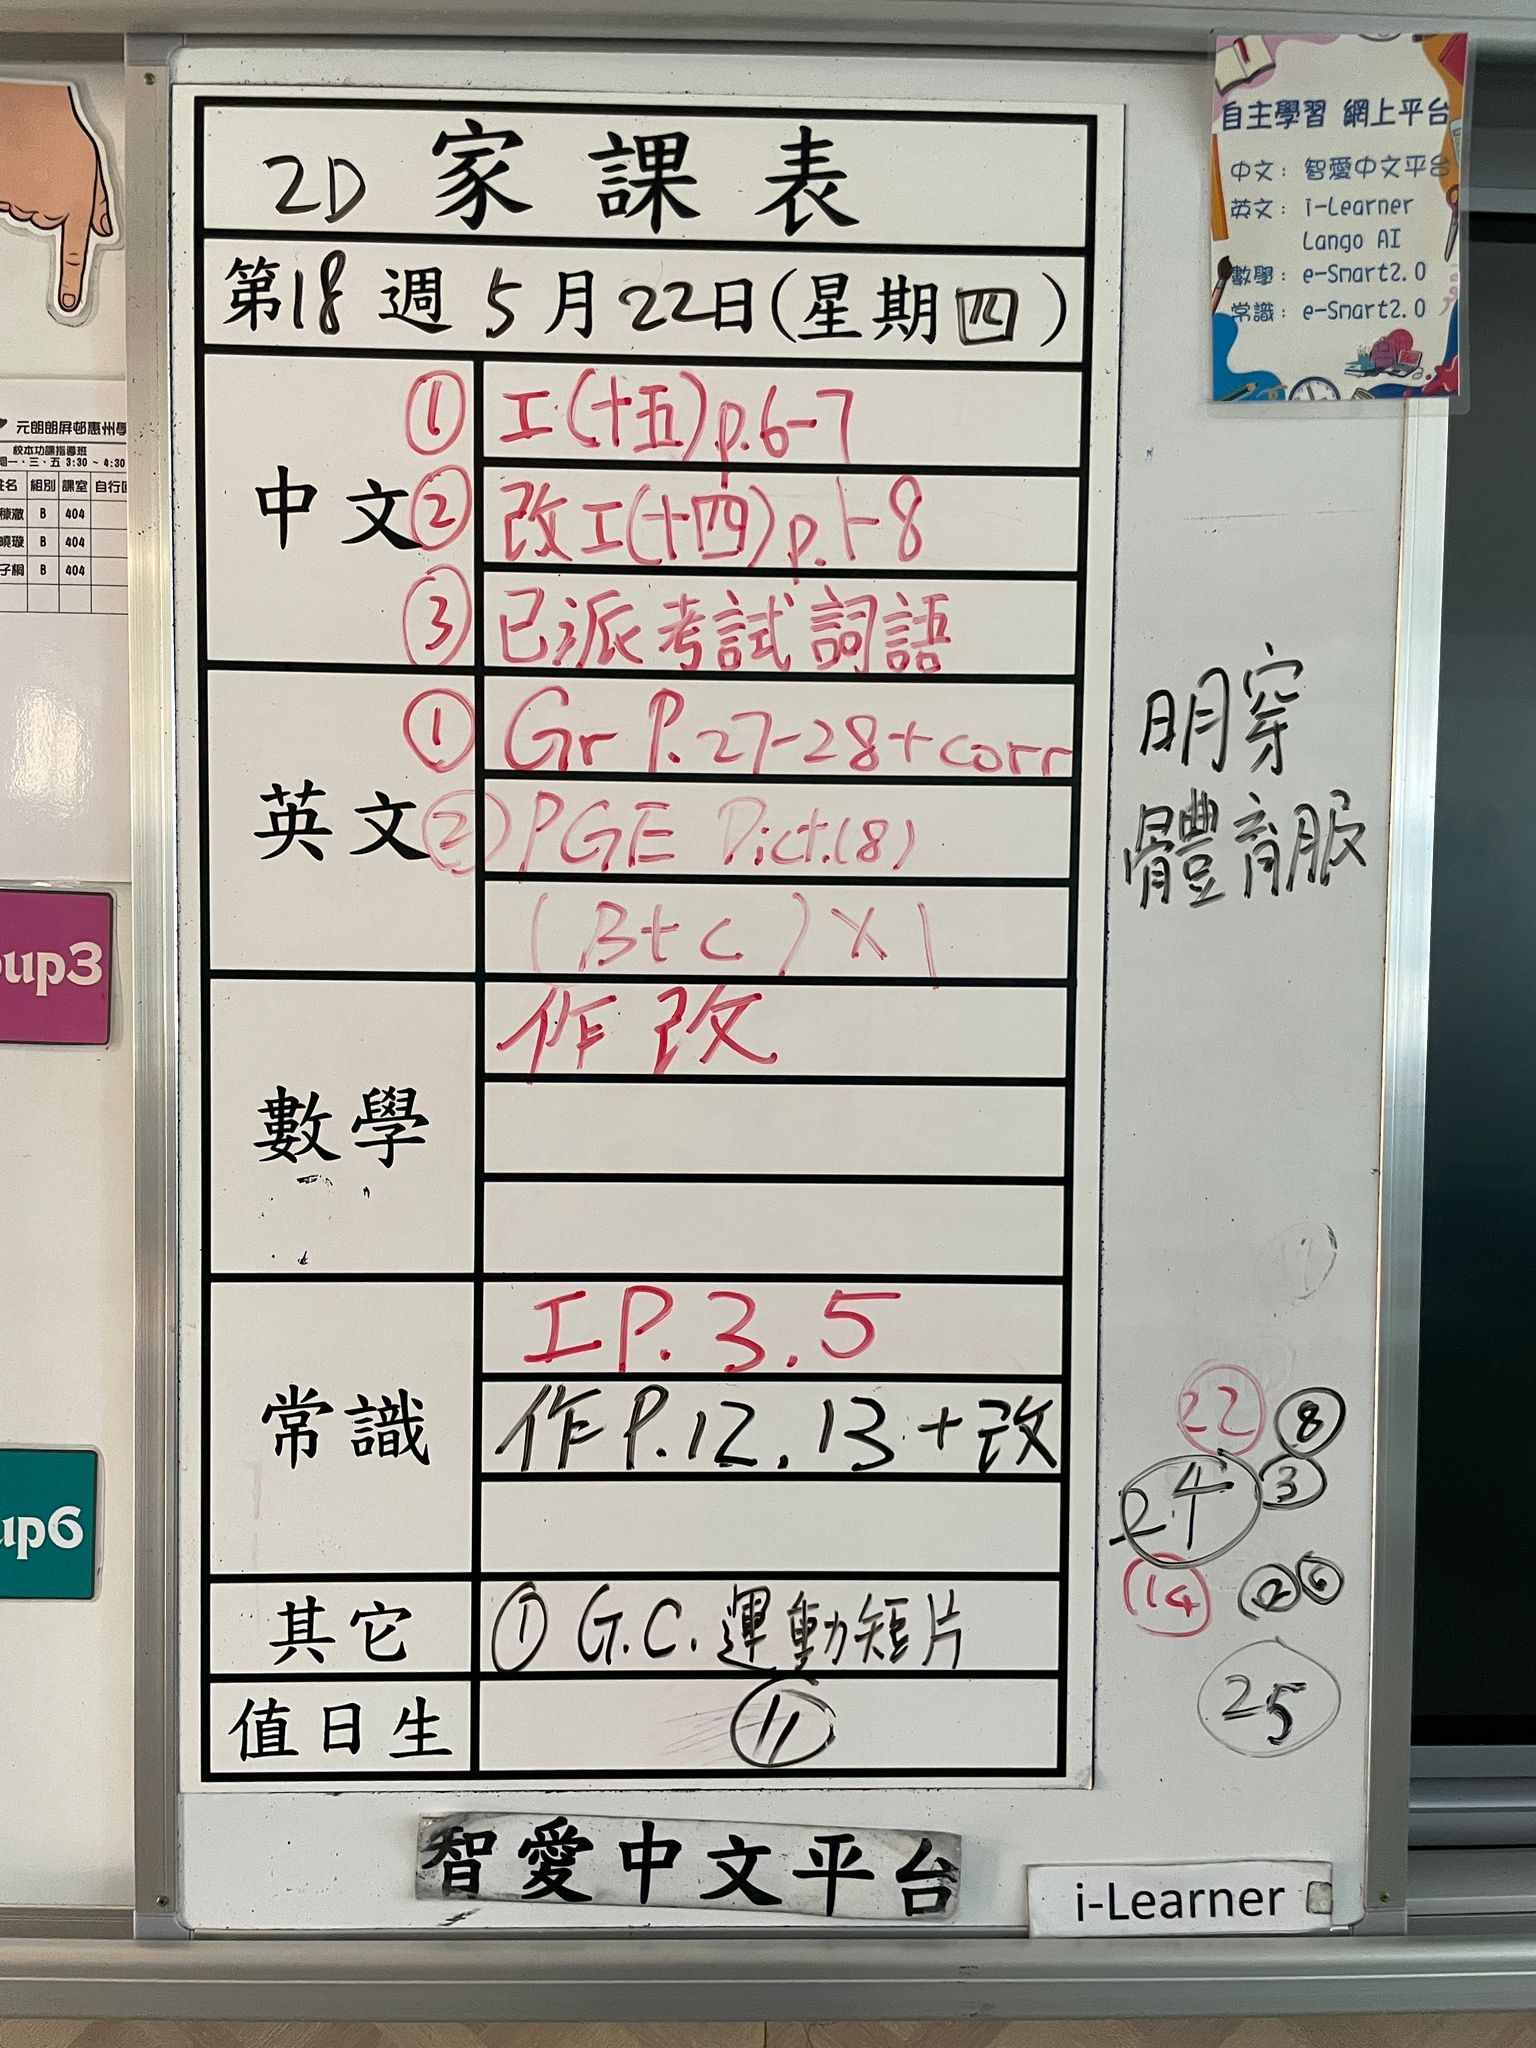 2D 家課表
第18週 5月22日(星期四)
中文
① 工(十五)p.6-7
② 改工(十四)p.1-8
③ 已派考試詞語
英文
① Gr P.27-28+corr
② PGE Dict.(8)
(B+C)×1
數學
作改
常識
工P.3.5
作P.12.13+改
其它
① G.C.運動短片
值日生
⑪
智愛中文平台
i-Learner
自主學習 網上平台
中文: 智愛中文平台
英文: i-Learner
Lango AI
數學: e-Smart2.0
常識: e-Smart2.0
明穿
體育服
22 8
24 3
14 2 6
25
元朗朗屏邨惠州學
校本功課指導班
一、三、五 3:30 ~ 4:30
姓名 組別 課室 自行回
B 404
B 404
B 404
up3
up6